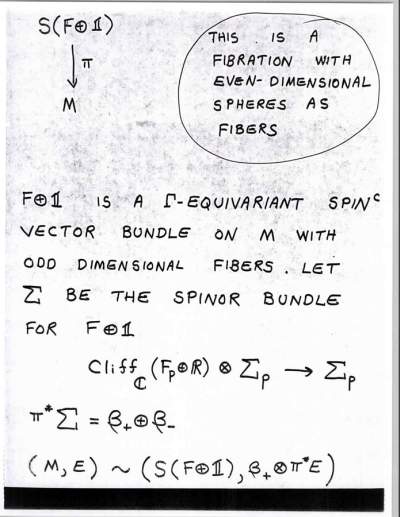 S(F⊕𝟙)
↓ π
M
THIS IS A
FIBRATION WITH
EVEN-DIMENSIONAL
SPHERES AS
FIBERS
F⊕𝟙 IS A Γ-EQUIVARIANT SPINᶜ
VECTOR BUNDLE ON M WITH
ODD DIMENSIONAL FIBERS. LET
Σ BE THE SPINOR BUNDLE
FOR F⊕𝟙
Cliff_ℂ(F_p⊕ℝ) ⊗ Σ_p → Σ_p
π*Σ = β₊⊕β₋
(M,E) ~ (S(F⊕𝟙), β₊⊗π*E)